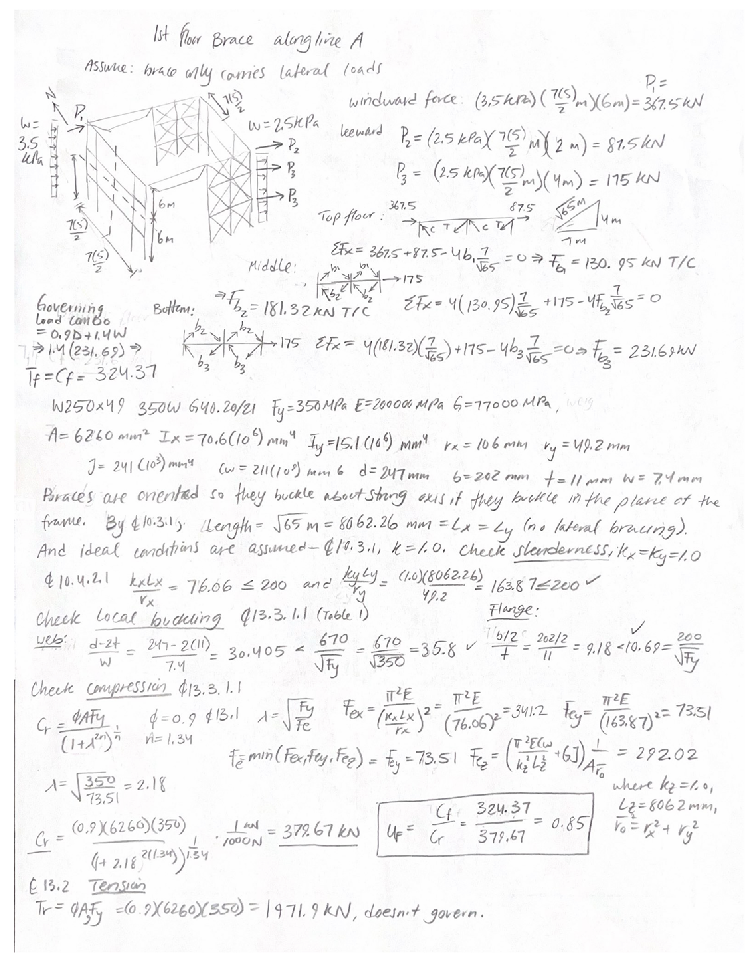 1st floor Brace along line A
Assume: brace only carries lateral loads
windward force: (3.5 kPa)(7(5)/2 m)(6m) = 367.5 kN
P1 =
leeward P2 = (2.5 kPa)(7(5)/2 m)(2 m) = 87.5 kN
P3 = (2.5 kPa)(7(5)/2 m)(4m) = 175 kN
N
P1
w = 3.5 kPa
7(5)/2
w = 2.5 kPa
P2
P3
P3
6m
6m
7(5)/2
7(5)/2
Top floor: 367.5 C T C T 87.5 √65m 4m 7m
ΣFx = 367.5 + 87.5 - 4b1 7/√65 = 0 ⇒ Fb1 = 130.95 kN T/C
Middle: b1 b1 b2 b2 → 175
ΣFx = 4(130.95) 7/√65 + 175 - 4Fb2 7/√65 = 0
⇒ Fb2 = 181.32 kN T/C
Bottom: b2 b2 b3 b3 → 175
ΣFx = 4(181.32)(7/√65) + 175 - 4b3 7/√65 = 0 ⇒ Fb3 = 231.69 kN
Governing
load combo
= 0.9D + 1.4W
⇒ 1.4(231.69) ⇒
Tf = Cf = 324.37
W250x49 350W G40.20/21 Fy = 350 MPa E = 200000 MPa G = 77000 MPa,
A = 6260 mm² Ix = 70.6(10⁶) mm⁴ Iy = 15.1(10⁶) mm⁴ rx = 106 mm ry = 49.2 mm
J = 241(10³) mm⁴ Cw = 211(10⁹) mm 6 d = 247 mm b = 202 mm t = 11 mm w = 7.4 mm
Braces are oriented so they buckle about strong axis if they buckle in the plane of the
frame. By ¢10.3.1, Length = √65 m = 8062.26 mm = Lx = Ly (no lateral bracing).
And ideal conditions are assumed - ¢10.3.1, k = 1.0. Check slenderness, kx = ky = 1.0
¢10.4.2.1 kxLx/rx = 76.06 ≤ 200 and kyLy/ry = (1.0)(8062.26)/49.2 = 163.87 ≤ 200 ✓
Check local buckling ¢13.3.1.1 (Table 1)
web: d-2t/w = 247-2(11)/7.4 = 30.405 < 670/√Fy = 670/√350 = 35.8 ✓
Flange: b/2/t = 202/2/11 = 9.18 < 10.69 = 200/√Fy ✓
Check compression ¢13.3.1.1
Cr = ϕAFy/(1+λ²ⁿ)^1/n ϕ = 0.9 ¢13.1 n = 1.34 λ = √Fy/Fe Fex = π²E/(kxLx/rx)² = π²E/(76.06)² = 341.2 Fey = π²E/(163.87)² = 73.51
Fe = min(Fex, Fey, Fez) = Fey = 73.51 Fez = (π²ECw/kz²Lz² + GJ) 1/Ar̄0² = 292.02
where kz = 1.0,
Lz = 8062 mm,
r̄0² = rx² + ry²
λ = √350/73.51 = 2.18
Cr = (0.9)(6260)(350)/(1+2.18^2(1.34))^1/1.34 · 1 kN/1000N = 379.67 kN
UF = Cf/Cr = 324.37/379.67 = 0.85
¢13.2 Tension
Tr = ϕAgFy = (0.9)(6260)(350) = 1971.9 kN, doesn't govern.